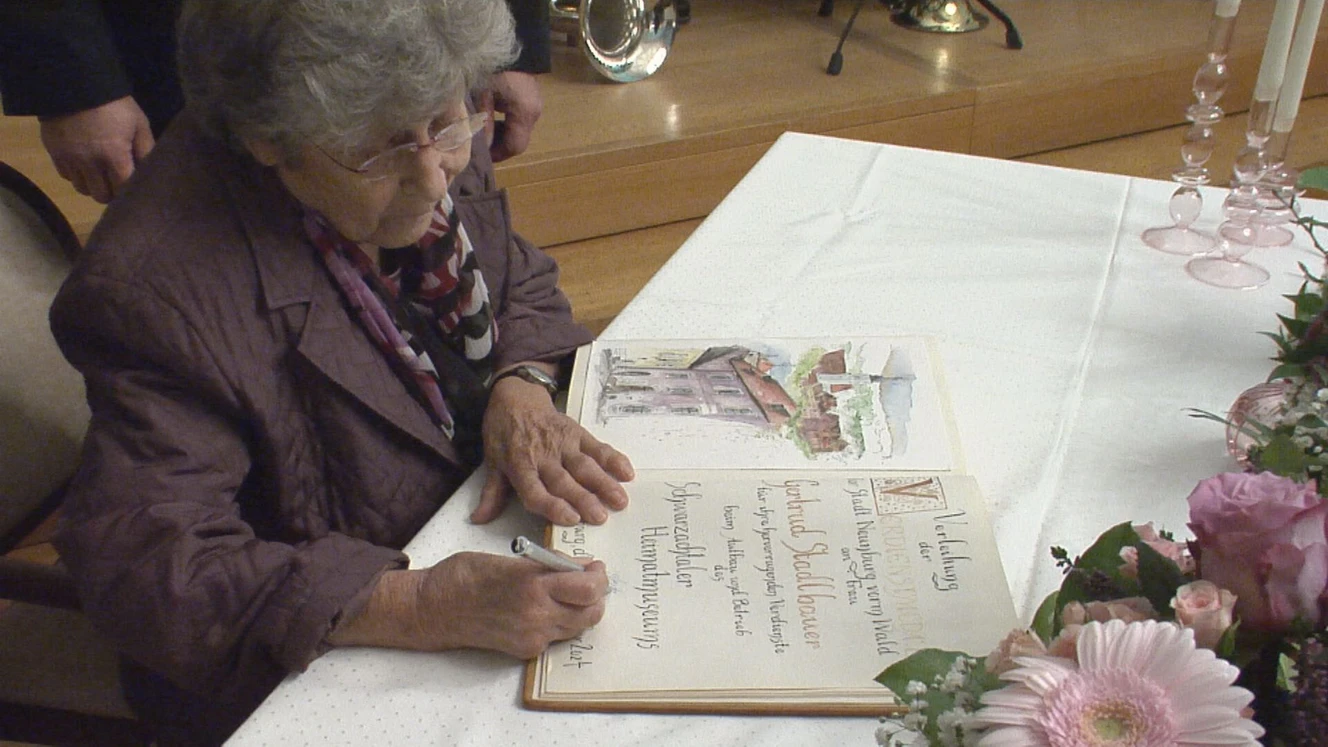 Verleihung
der
VERDIENSTMEDAILLE
der Stadt Neunburg vorm Wald
an Frau
Gertrud Stadlbauer
für ihre hervorragenden Verdienste
beim Aufbau und Betrieb
des
Schwarzachtaler
Heimatmuseums